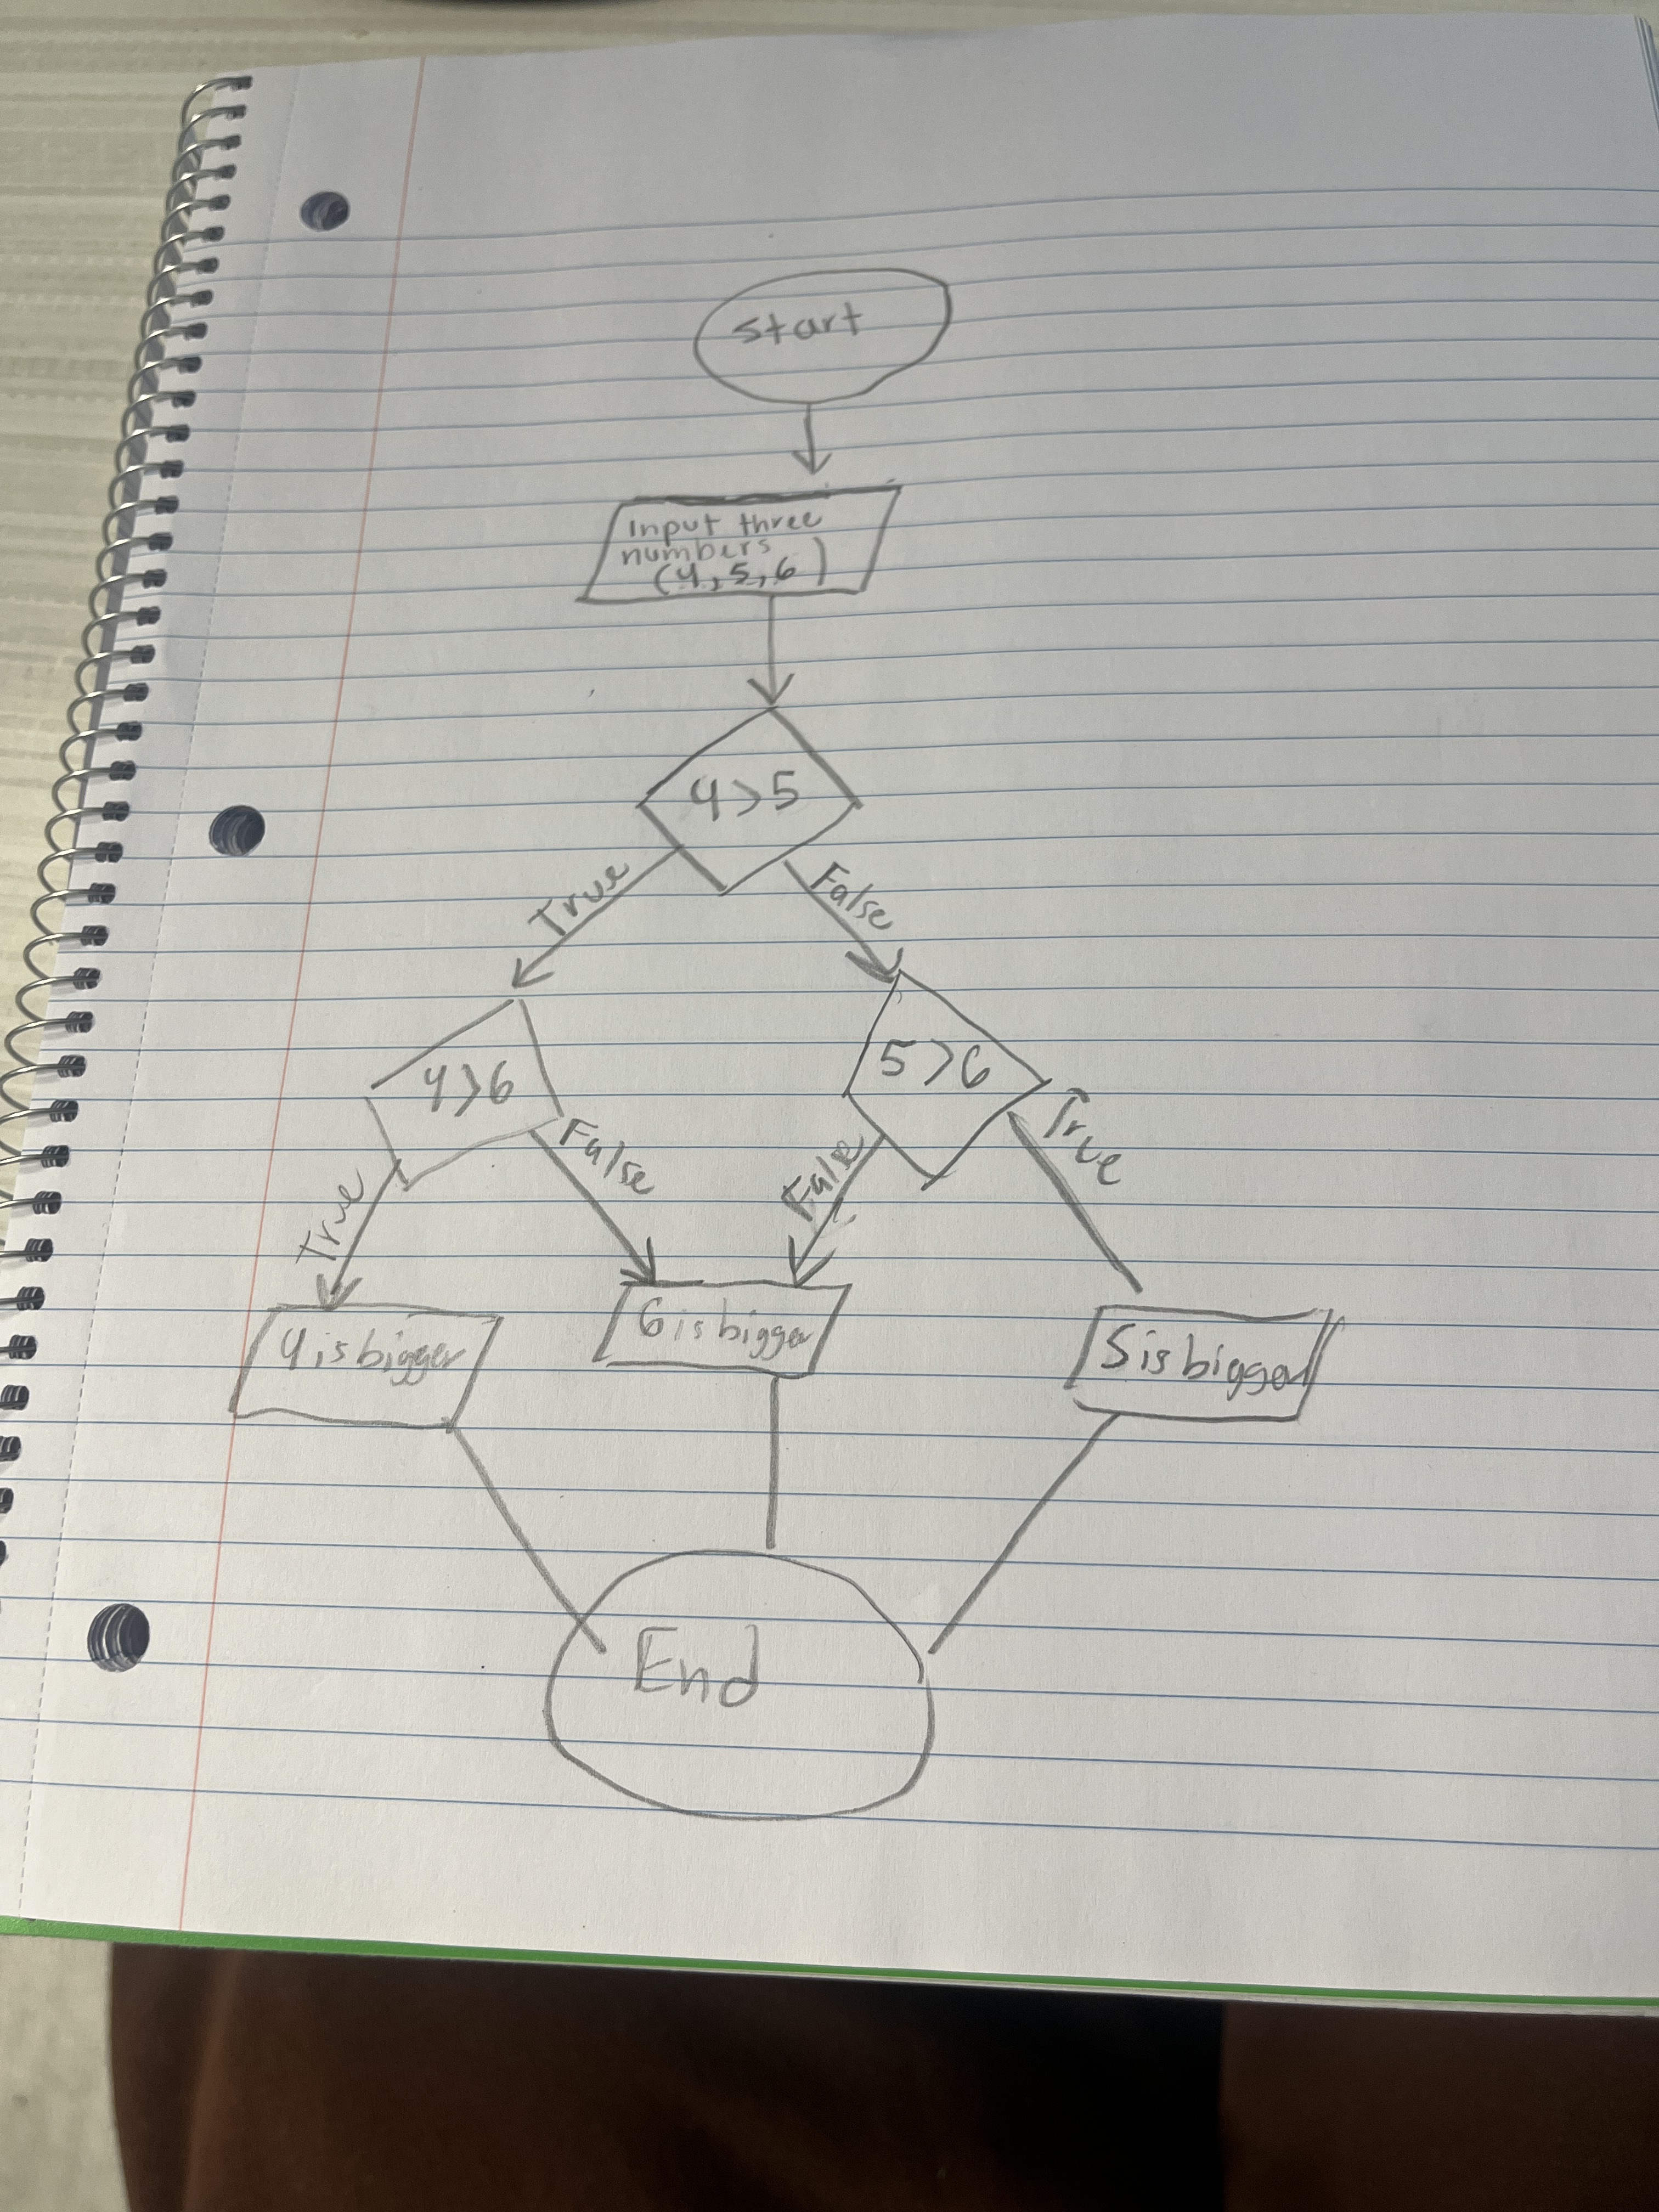 Start
Input three
numbers
(4,5,6)
4>5
True
False
4>6
5>6
True
False
False
True
4 is bigger
6 is bigger
5 is bigger
End